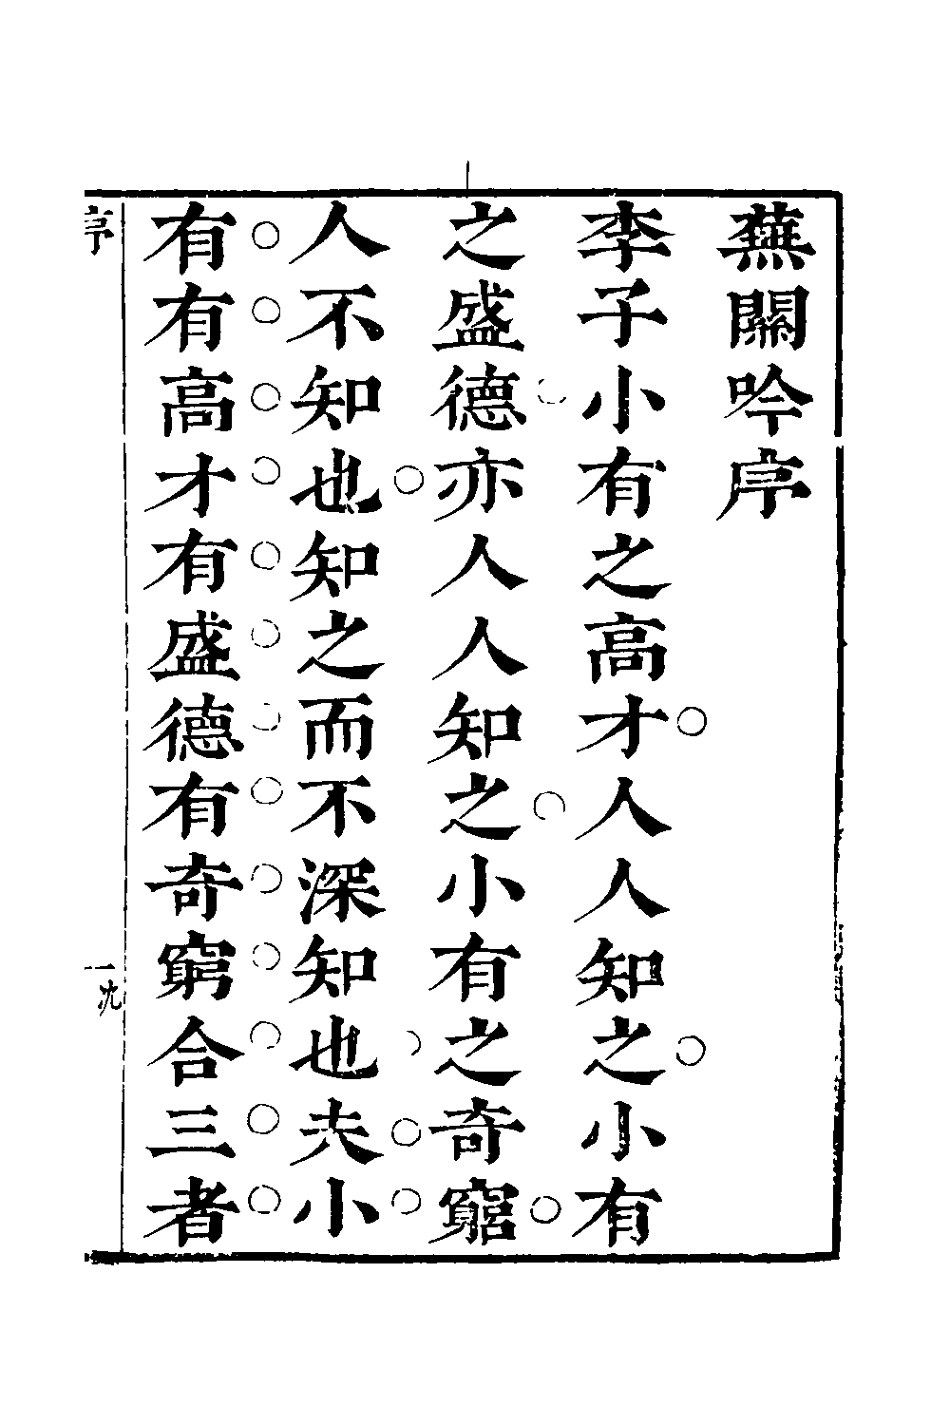 蕪關吟序
李子小有之高才人人知之小有
之盛德亦人人知之小有之奇窮
人不知也知之而不深知也夫小
有有高才有盛德有奇窮合三者
序
一